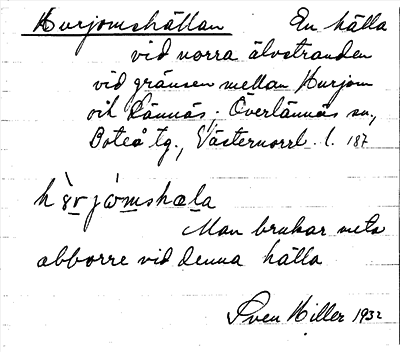 Hurjomshällan En hälla
vid norra älvstranden
vid gränsen mellan Hurjom
och Lännäs; Överlännäs sn,
Boteå tg., Västernorrl. l. 187
Man brukar meta
abborre vid denna hälla
Sven Hiller 1932